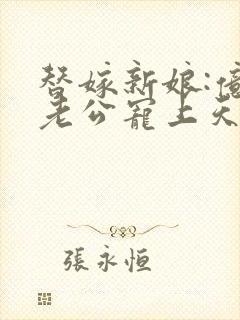 替嫁新娘:億
老公寵上天
張永恒